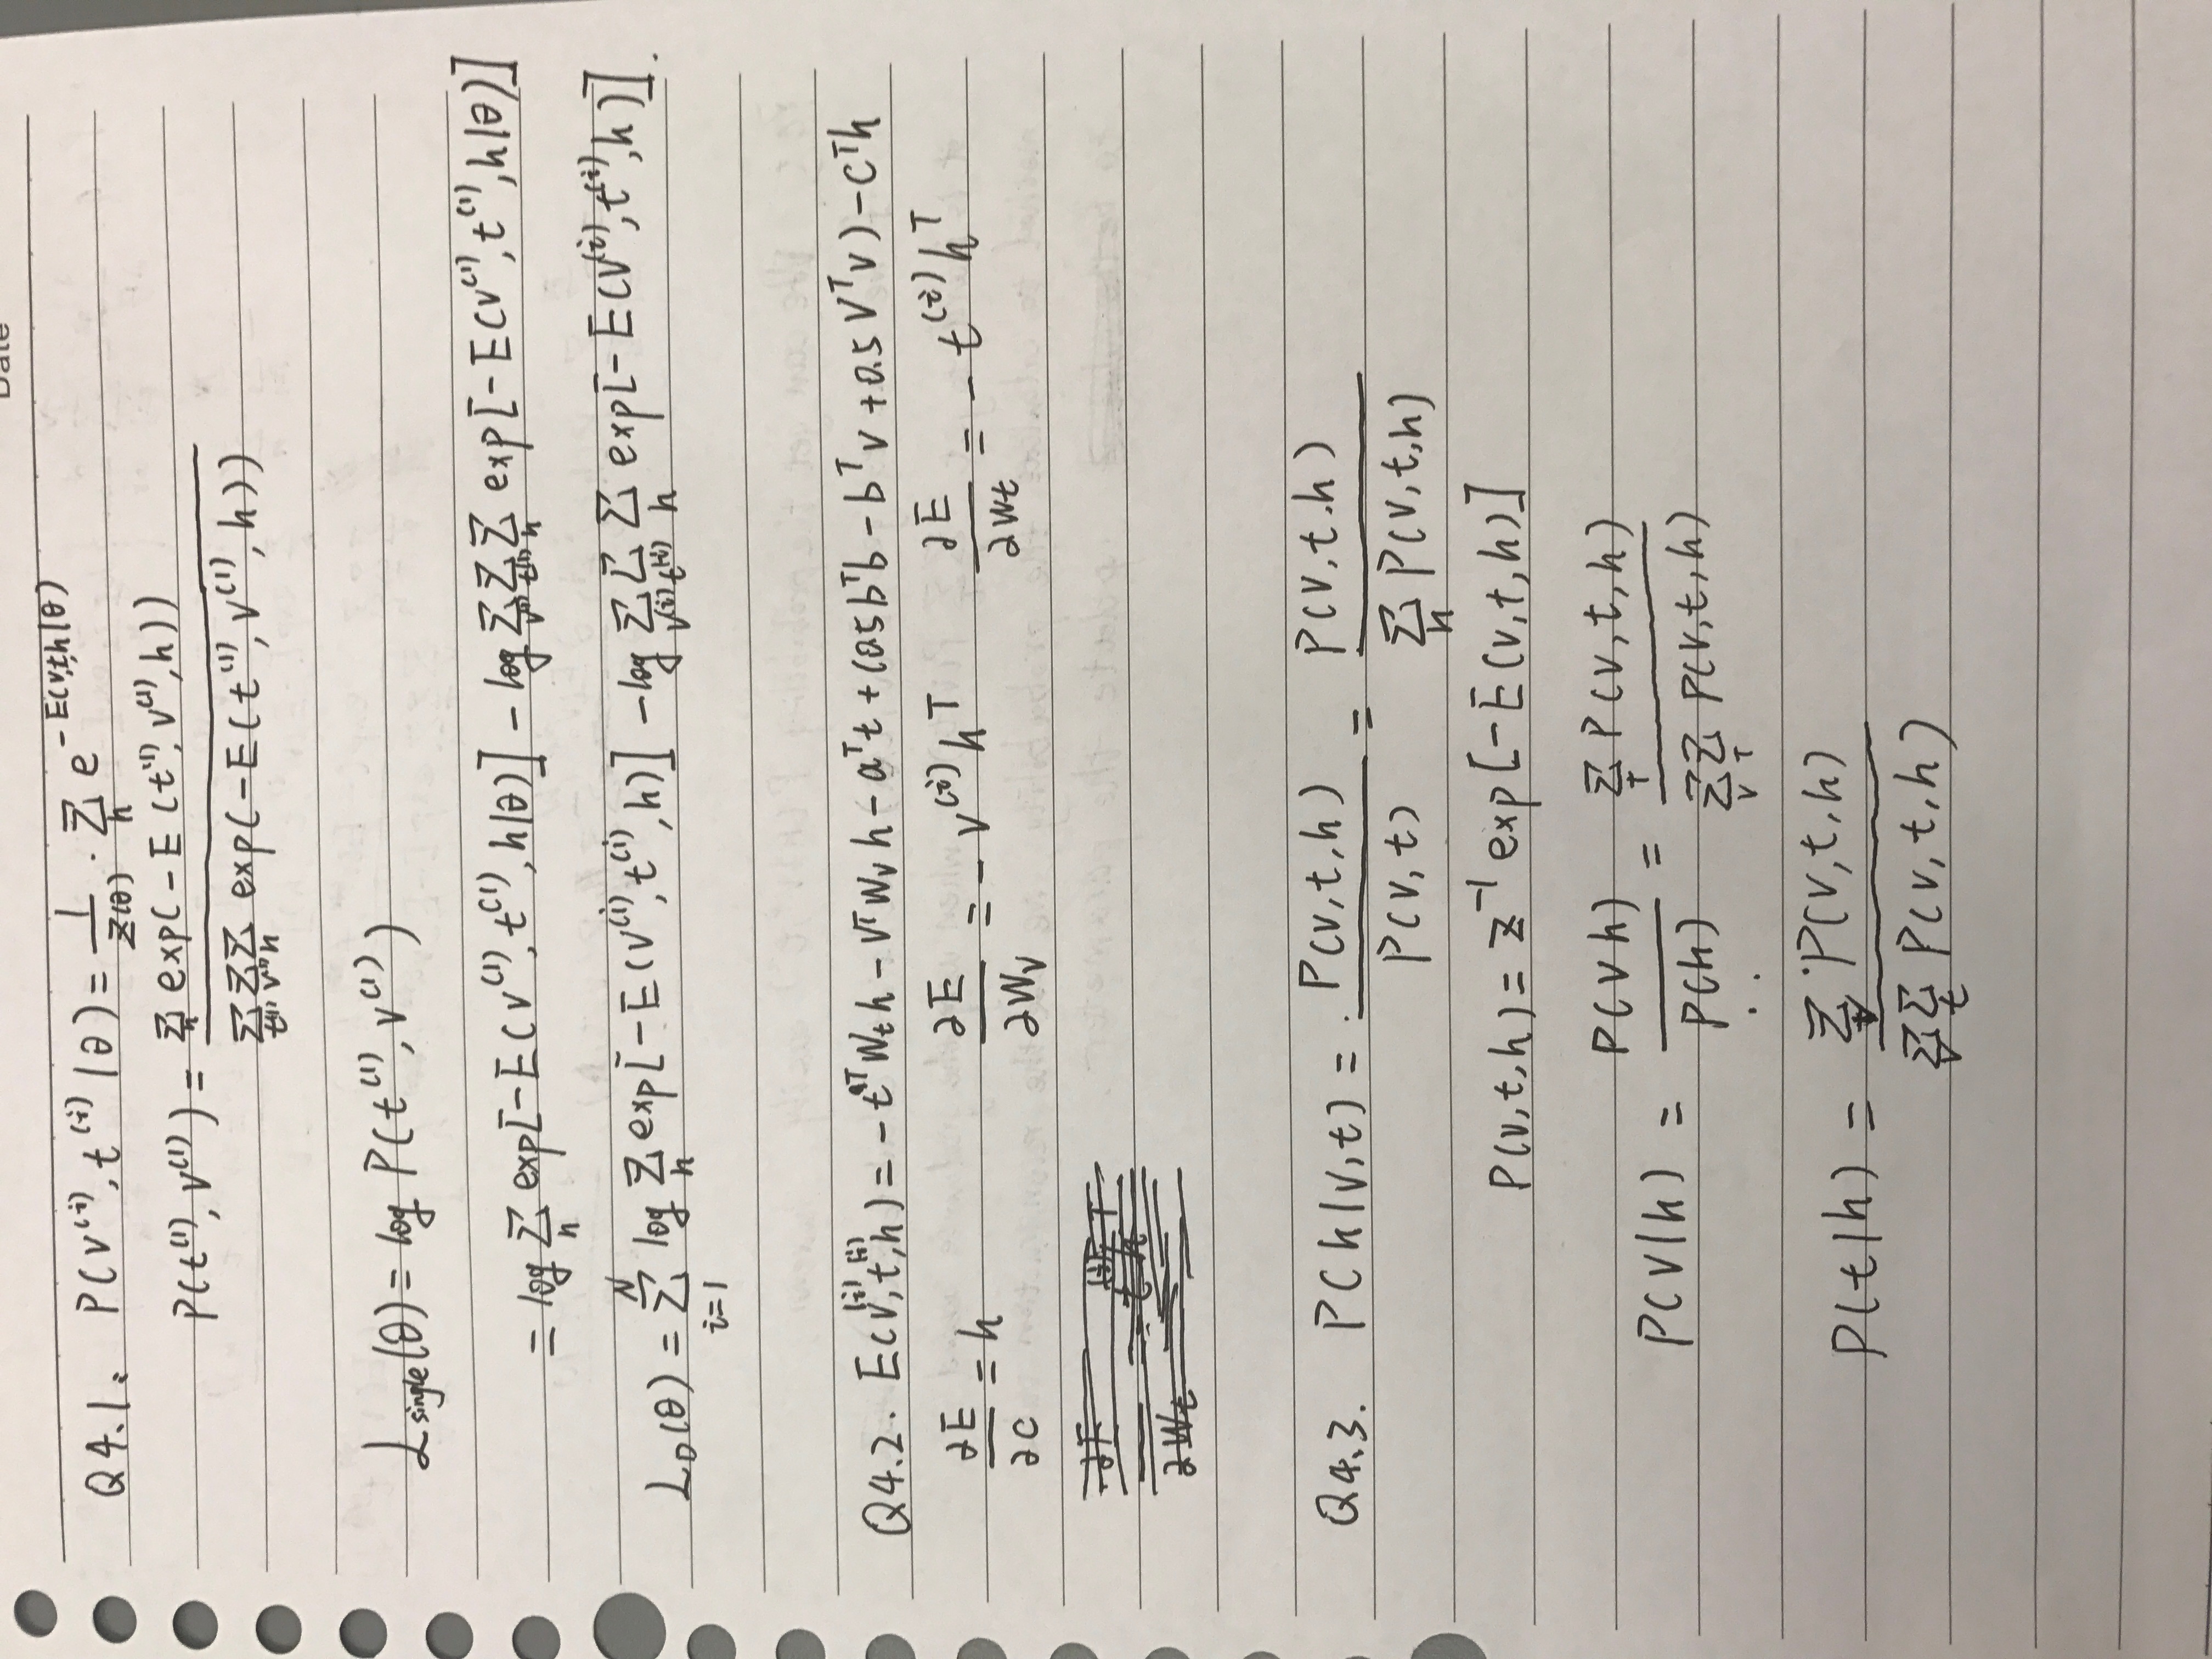 Date
Q4.1. P(v^(i), t^(i) | θ) = 1/Z(θ) · Σ_h e^(-E(v,t,h|θ))
P(t^(1), v^(1)) = Σ_h exp(-E(t^(1), v^(1), h)) / Σ_t^(1) Σ_v^(1) Σ_h exp(-E(t^(1), v^(1), h))
L_single(θ) = log P(t^(1), v^(1))
= log Σ_h exp[-E(v^(1), t^(1), h|θ)] - log Σ_v^(1) Σ_t^(1) Σ_h exp[-E(v^(1), t^(1), h|θ)]
L_D(θ) = Σ_{i=1}^N log Σ_h exp[-E(v^(i), t^(i), h)] - log Σ_v^(i) Σ_t^(i) Σ_h exp[-E(v^(i), t^(i), h)].
Q4.2. E(v^(i), t^(i), h) = -t^T W_t h - v^T W_v h - a^T t + (0.5 b^T b - b^T v + 0.5 v^T v) - c^T h
∂E/∂c = h ∂E/∂W_v = -v^(i) h^T ∂E/∂W_t = -t^(i) h^T
Q4.3. P(h|v,t) = P(v,t,h) / P(v,t) = P(v,t,h) / Σ_h P(v,t,h)
P(v,t,h) = z^-1 exp[-E(v,t,h)]
P(v|h) = P(v h) / P(h) = Σ_T P(v,t,h) / Σ_v Σ_T P(v,t,h)
P(t|h) = Σ_v P(v,t,h) / Σ_v Σ_t P(v,t,h)